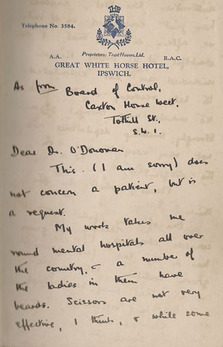 Telephone No. 3584.
Proprietors: Trust Houses, Ltd.
A.A. R.A.C.
GREAT WHITE HORSE HOTEL,
IPSWICH.
As from Board of Control,
Caxton House West,
Tothill St.,
S.W.1.
Dear Dr. O'Donovan
This (I am sorry) does
not concern a patient, but is
a request.
My work takes me
round mental hospitals all over
the country, & a number of
the ladies in them have
beards. Scissors are not very
effective, I think, & while some